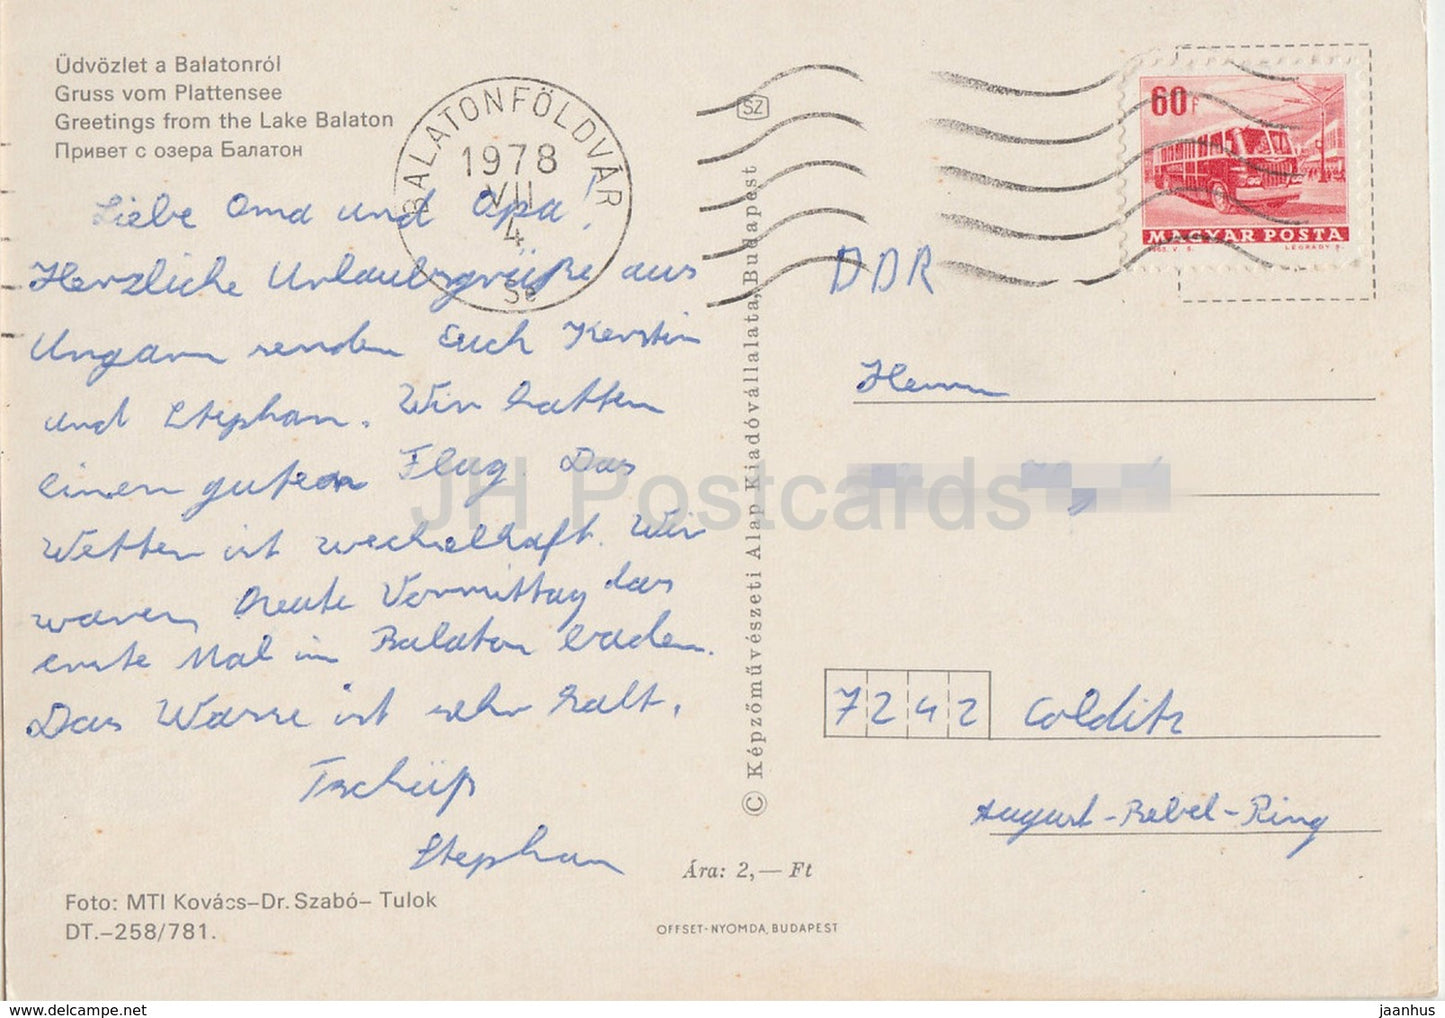 Üdvözlet a Balatonról
Gruss vom Plattensee
Greetings from the Lake Balaton
Привет с озера Балатон
BALATONFÖLDVÁR
1978
VII
4
Se
SZ
60f
MAGYAR POSTA
1963. V. 8.
LÉGRÁDY S.
Liebe Oma und Opa!
Herzliche Urlaubsgrüße aus
Ungarn senden Euch Kerstin
und Stephan. Wir hatten
einen guten Flug. Das
Wetter ist wechselhaft. Wir
waren heute Vormittag das
erste Mal im Balaton baden.
Das Wasser ist sehr kalt.
Tschüß
Stephan
DDR
Herrn
7242 Colditz
August-Bebel-Ring
© Képzőművészeti Alap Kiadóvállalata, Budapest
Ára: 2,— Ft
Foto: MTI Kovács–Dr. Szabó– Tulok
DT.–258/781.
OFFSET-NYOMDA, BUDAPEST
JH Postcards
www.delcampe.net
jaanhus